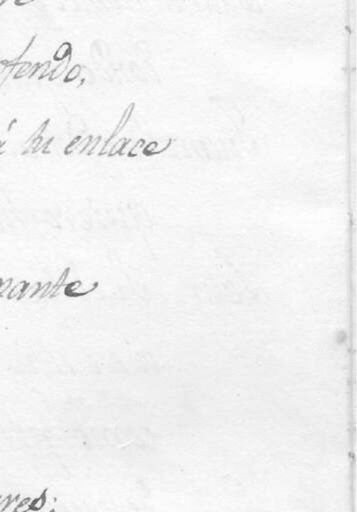 ofendo,
á tu enlace
nante
res: